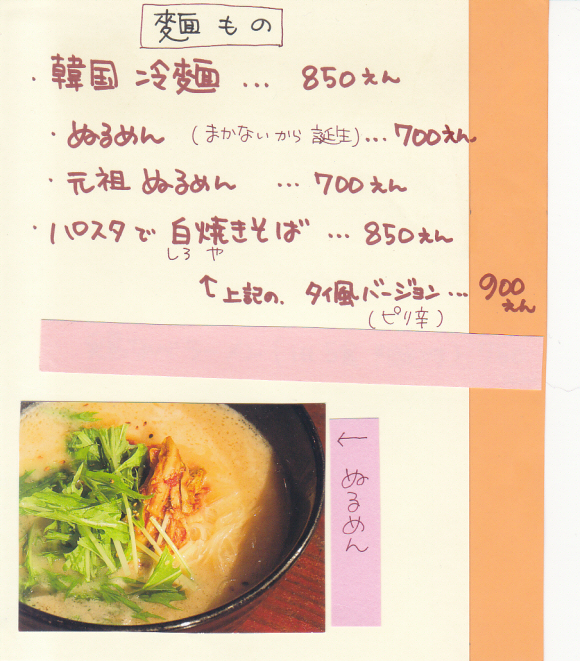 麺もの
・韓国 冷麺 … 850えん
・ぬるめん (まかないから誕生) … 700えん
・元祖 ぬるめん … 700えん
・パスタで 白焼きそば … 850えん
しろ や
↑上記の、タイ風バージョン… 900えん
(ピリ辛)
← ぬるめん